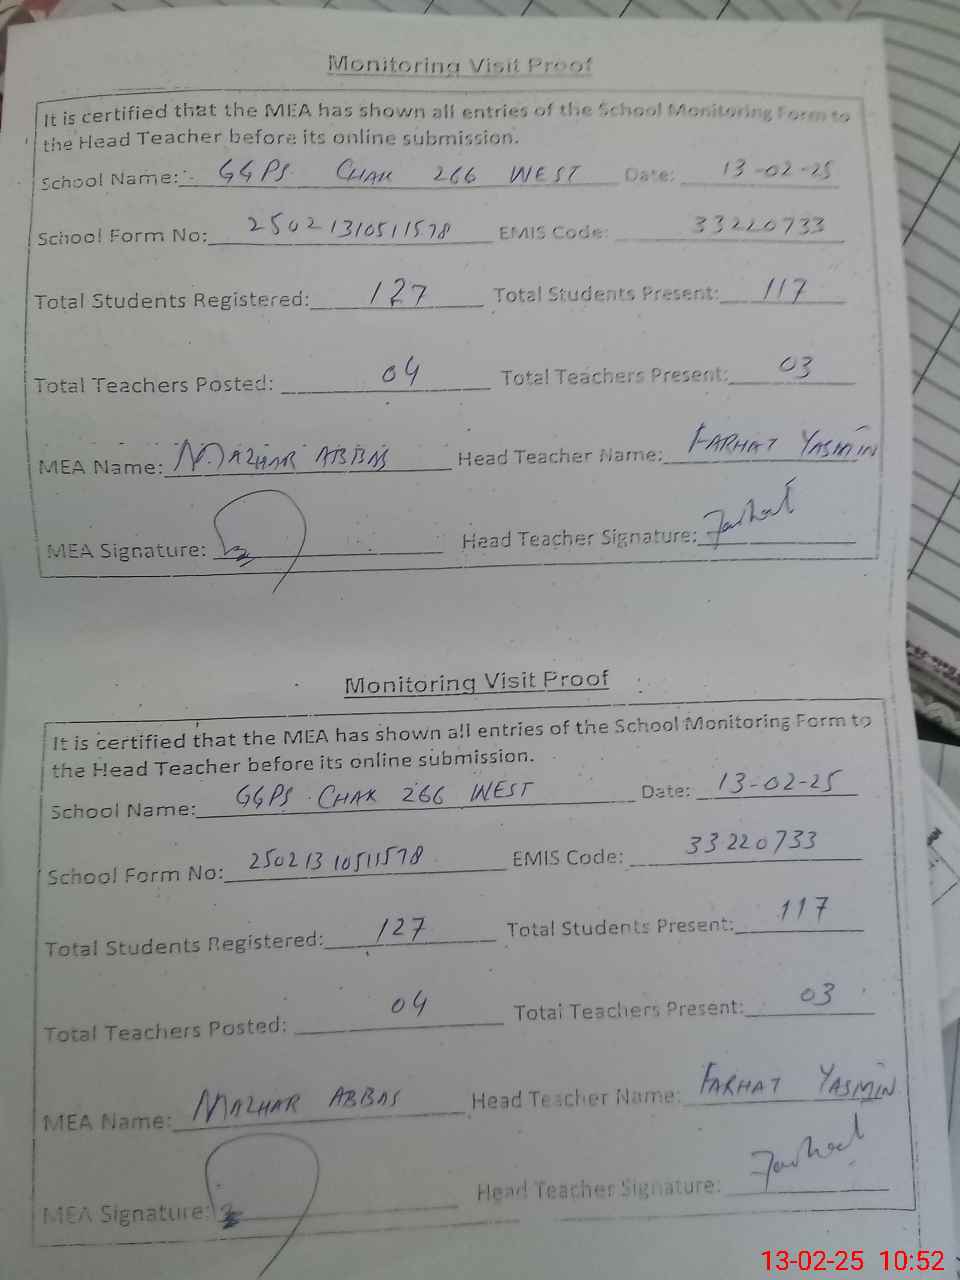 Monitoring Visit Proof
It is certified that the MEA has shown all entries of the School Monitoring Form to
the Head Teacher before its online submission.
School Name: GGPS CHAK 266 WEST Date: 13-02-25
School Form No: 25021310511578 EMIS Code: 33220733
Total Students Registered: 127 Total Students Present: 117
Total Teachers Posted: 04 Total Teachers Present: 03
MEA Name: MAZHAR ABBAS Head Teacher Name: FARHAT YASMIN
MEA Signature: Head Teacher Signature: Farhat
Monitoring Visit Proof
It is certified that the MEA has shown all entries of the School Monitoring Form to
the Head Teacher before its online submission.
School Name: GGPS CHAK 266 WEST Date: 13-02-25
School Form No: 25021310511578 EMIS Code: 33220733
Total Students Registered: 127 Total Students Present: 117
Total Teachers Posted: 04 Total Teachers Present: 03
MEA Name: MAZHAR ABBAS Head Teacher Name: FARHAT YASMIN
MEA Signature: Head Teacher Signature: Farhat
13-02-25 10:52